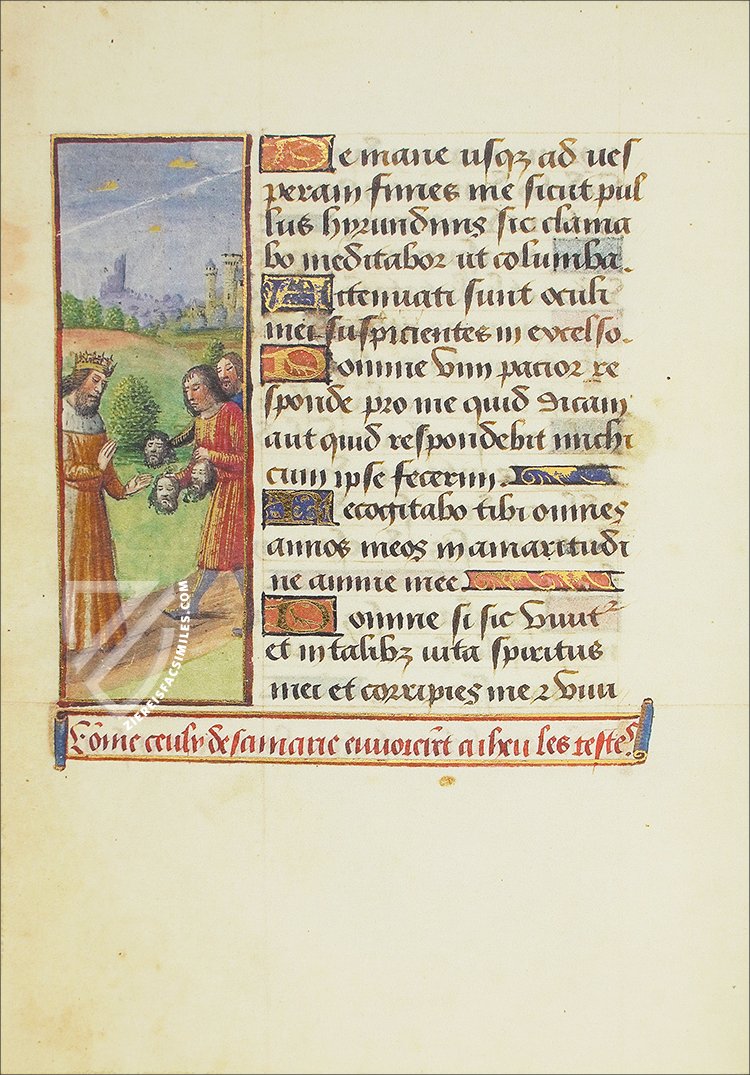 De mane usqz ad ues
peram finies me sicut pul
lus hyrundinis sic clama
bo meditabor ut columba.
Attenuati sunt oculi
mei suspicientes in excelso.
Domine vim patior re
sponde pro me quid dicam
aut quid respondebit michi
cum ipse fecerim.
Recogitabo tibi omnes
annos meos in amaritudi
ne anime mee
Domine si sic viuit²
et in talibz uita spiritus
mei et corripies me ⁊ viui
Cōme ceulx de samarie envoierēt a iheu les testes
ZIEREISFACSIMILES.COM